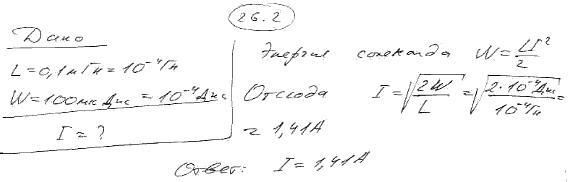 26.2
Дано
L = 0,1 мГн = 10⁻⁴ Гн
W = 100 мк Дж = 10⁻⁴ Дж
I = ?
Энергия соленоида W = LI²/2
Отсюда I = √(2W/L) = √(2·10⁻⁴ Дж/10⁻⁴ Гн) =
= 1,41 А
Ответ: I = 1,41 А